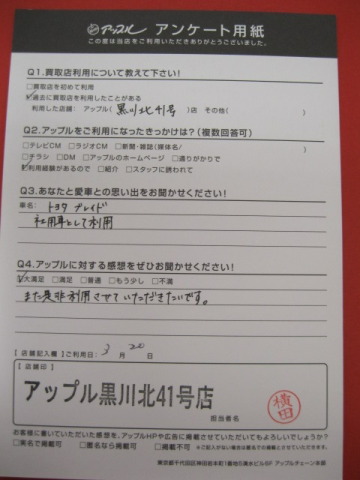 アップル アンケート用紙
この度は当店をご利用いただきありがとうございました。
Q1.買取店利用について教えて下さい!
□買取店を初めて利用
☑過去に買取店を利用したことがある
利用した店舗: アップル( 黒川北41号 )店 その他( )
Q2.アップルをご利用になったきっかけは?(複数回答可)
□テレビCM □ラジオCM □新聞・雑誌(媒体名/ )
□チラシ □DM □アップルのホームページ □通りがかりで
☑利用経験があるので □紹介 □スタッフに誘われて
Q3.あなたと愛車との思い出をお聞かせください!
車名: トヨタ ブレイド
社用車として利用
Q4.アップルに対する感想をぜひお聞かせください!
☑大満足 □満足 □普通 □もう少し □不満
また是非利用させていただきたいです。
【店舗記入欄】ご利用日: 3 月 20
【店舗印】
アップル黒川北41号店
担当者名
横田
お客様に書いていただいた感想を、アップルHPや広告に掲載させていただいてもよろしいでしょうか?
□実名で掲載可 □匿名なら掲載可 □掲載不可